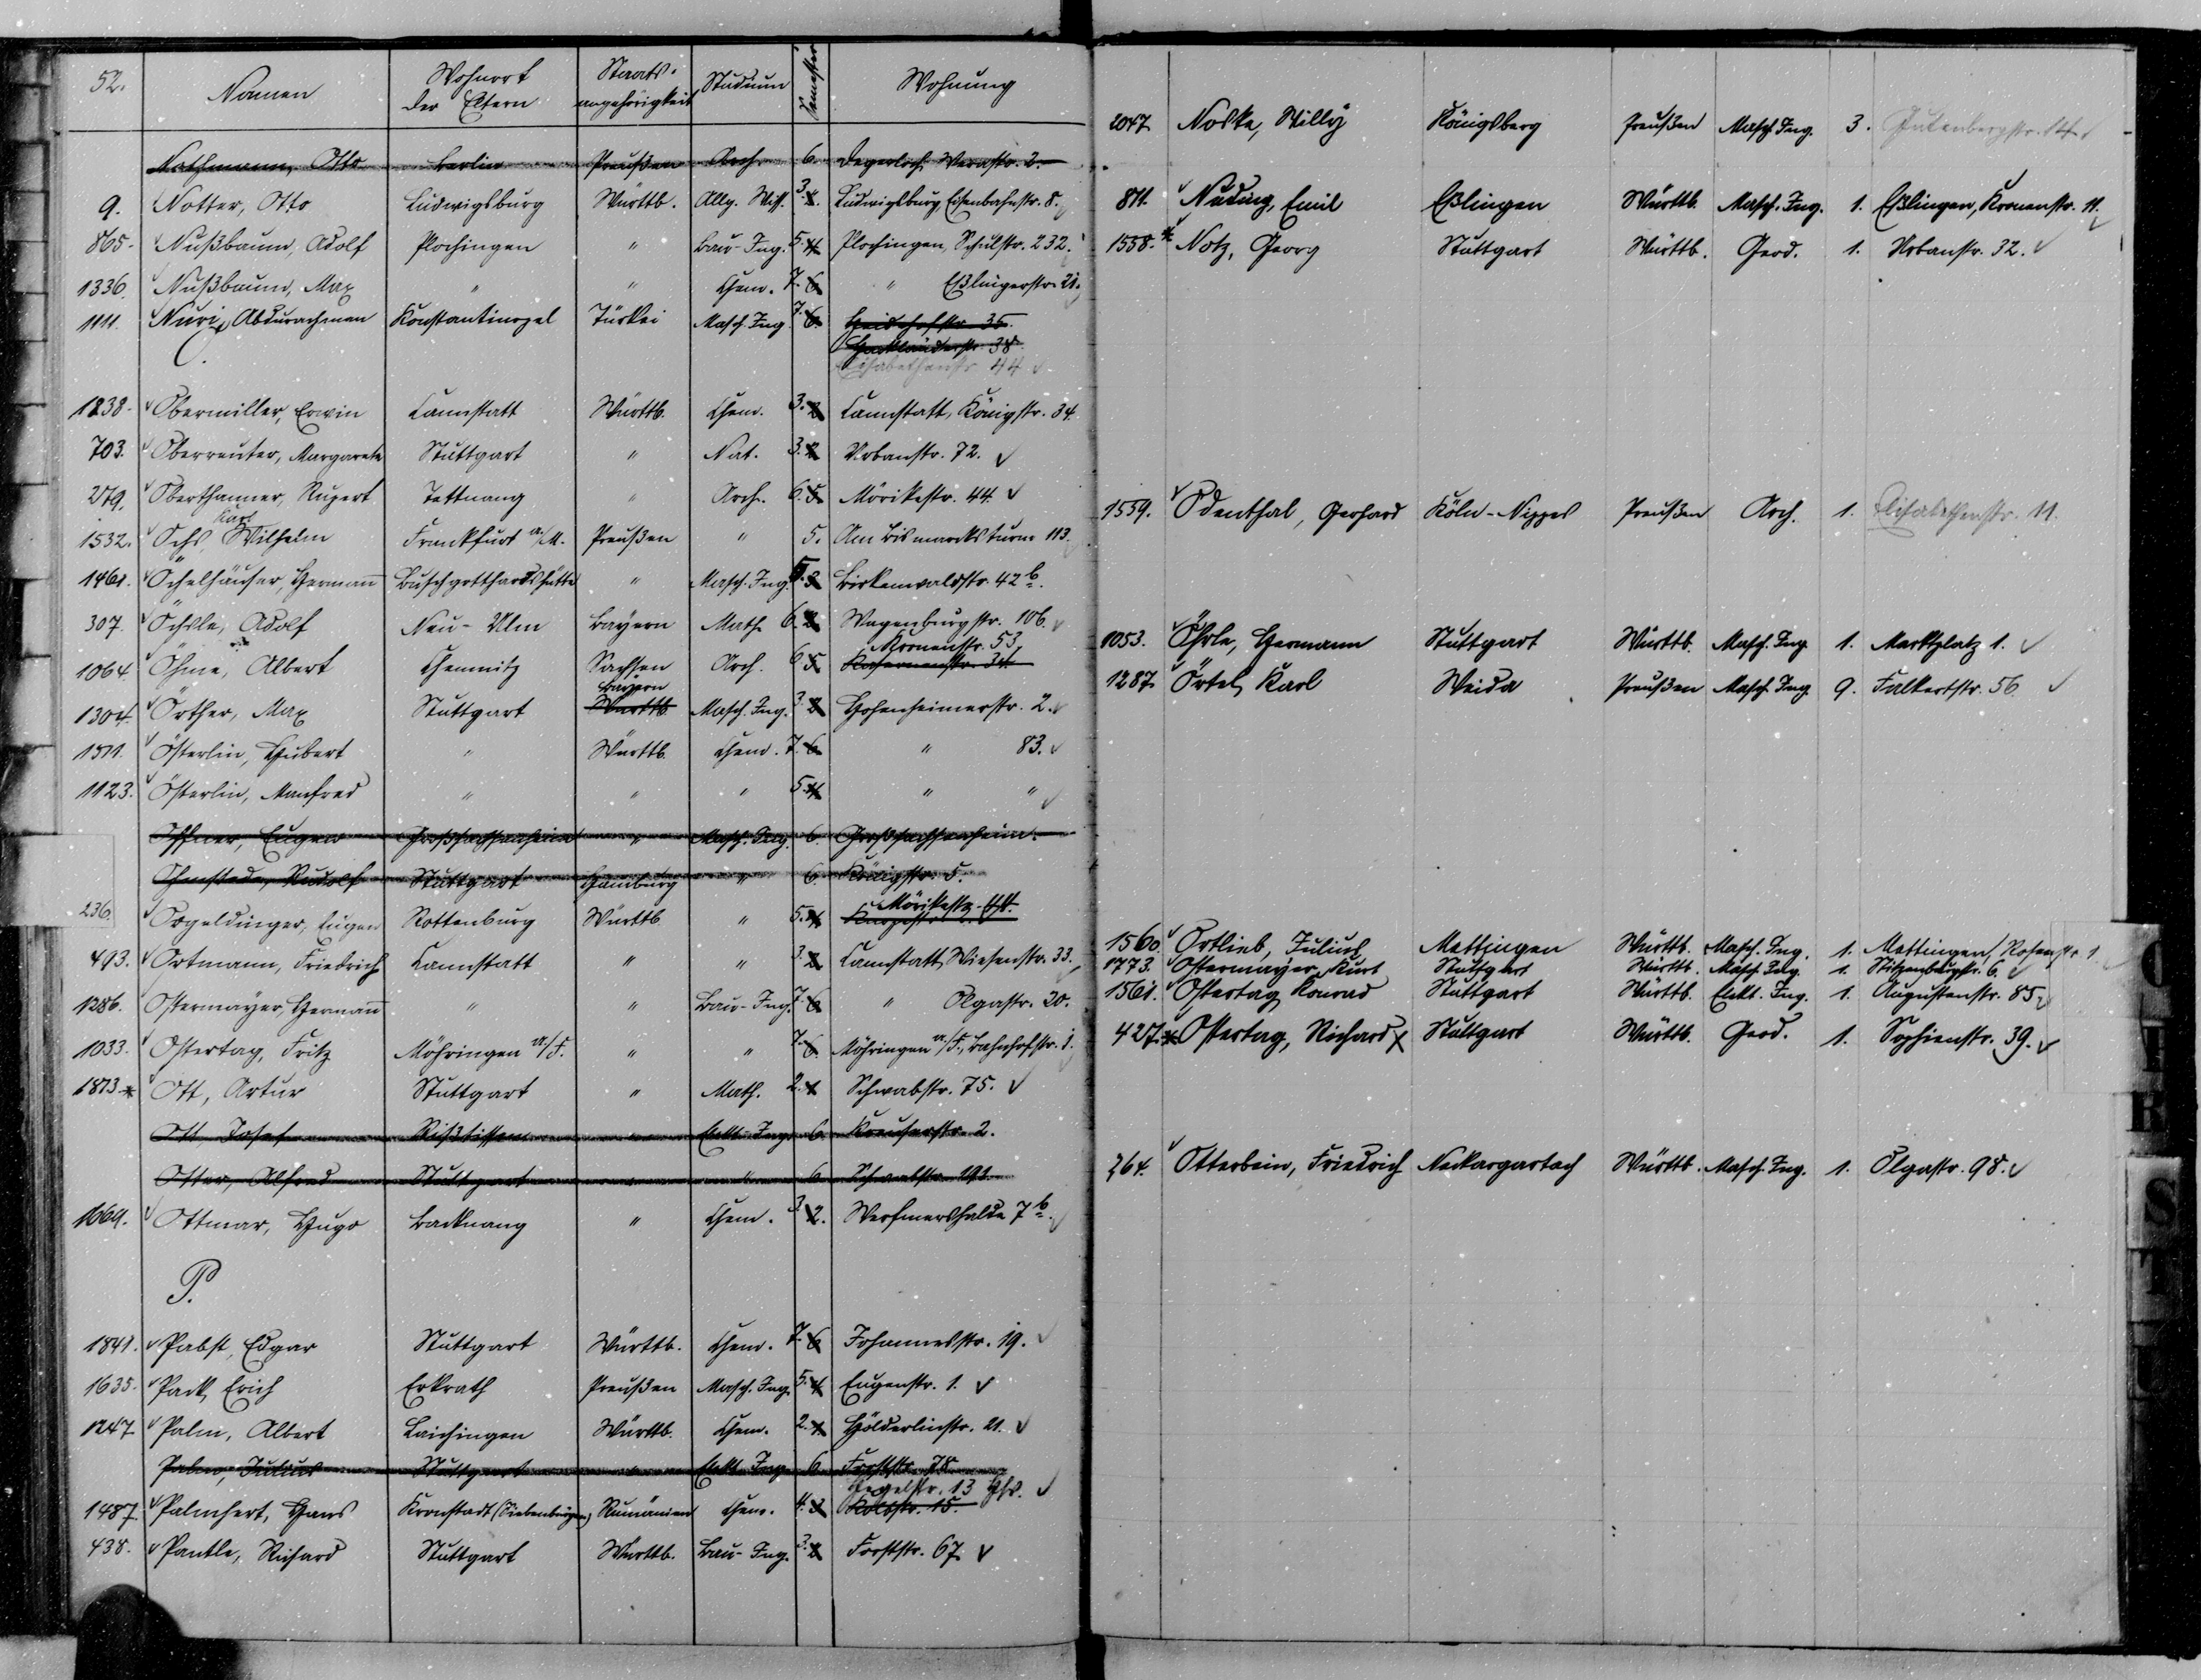 52. Namen Wohnort der Eltern Staats-angehörigkeit Studium Semester Wohnung
Nathmann, Otto Berlin Preußen Arch. 6. Degerloch, Werastr. 2.
9. Notter, Otto Ludwigsburg Württb. Allg. Wiss. 3. Ludwigsburg, Eisenbahnstr. 8.
865. Nußbaum, Adolf Plochingen " Bau-Ing. 5. 4. Plochingen, Schulstr. 232.
1336. Nußbaum, Max " " Chem. 7. 6. " Eßlingerstr. 21.
1111. Nuri, Abdurachman Konstantinopel Türkei Masch. Ing. 7. 6. 35.
Hackländerstr. 38
Elisabethenstr. 44
1238. Obermiller, Erwin Cannstatt Württb. Chem. 3. 2. Cannstatt, Königstr. 34.
703. Oberreuter, Margarete Stuttgart " Nat. 3. 2. Urbanstr. 72.
279. Oberthanner, Rupert Tettnang " Arch. 6. 5. Mörikestr. 44.
Karl
1532. Ochs, Wilhelm Frankfurt a/M. Preußen " 5. Am Bismarcksturm 113.
1461. Öchelhäuser, Hermann Buschgotthardshütte " Masch. Ing. 5. 3. Birkenwaldstr. 42 b.
307. Öchsle, Adolf Neu-Ulm Bayern Math. 6. Wagenburgstr. 106.
Kronenstr. 53
1064. Öhme, Albert Chemnitz Sachsen Arch. 6. 5. Kasernenstr. 34.
Bayern
1304. Örther, Max Stuttgart Württb. Masch. Ing. 3. 2. Hohenheimerstr. 2.
1511. Österlin, Hubert " Württb. Chem. 7. 6. " 83.
1123. Österlin, Manfred " " " 5. 4. " "
Öffner, Eugen Großsachsenheim " Masch. Ing. 6. Großsachsenheim.
Ohmstede, Rudolf Stuttgart Hamburg " 6. Königstr. 5.
Mörikestr. 44.
236. Orgeldinger, Eugen Rottenburg Württb. " 5. 4.
493. Ortmann, Friedrich Cannstatt " " 3. 2. Cannstatt, Wiesenstr. 33.
1286. Ostermayer, Hermann " " Bau-Ing. 7. 6. " Olgastr. 20.
1033. Ostertag, Fritz Möhringen a/F. " " 7. 6. Möhringen a/F., Bahnhofstr. 1.
1873. * Ott, Artur Stuttgart " Math. 2. 1. Schwabstr. 75.
Ott, Josef Rißtissen " Elekt.-Ing. 6. Kreuserstr. 2.
Otter, Alfred Stuttgart " " 6. Schwabstr. 191.
1669. Ottmar, Hugo Backnang " Chem. 3. 2. Werfmershalde 7 b.
P.
1841. Pabst, Edgar Stuttgart Württb. Chem. 7. 6. Johannesstr. 19.
1635. Pack, Erich Erkrath Preußen Masch. Ing. 5. 4. Eugenstr. 1.
1247. Palm, Albert Laichingen Württb. Chem. 2. 1. Hölderlinstr. 21.
Palm, Julius Stuttgart " Elekt. Ing. 6. Forststr. 78
Hegelstr. 13 Hths.
1487. Palmhert, Hans Kronstadt (Siebenbürgen) Rumänien Chem. 4. 3. Kolbstr. 15.
438. Pantle, Richard Stuttgart Württb. Bau-Ing. 3. 2. Forststr. 67.
2047. Noske, Willy Königsberg Preußen Masch. Ing. 3. Gutenbergstr. 14.
811. Nuding, Emil Eßlingen Württb. Masch. Ing. 1. Eßlingen, Kronenstr. 11.
1558. * Notz, Georg Stuttgart Württb. Geod. 1. Urbanstr. 32.
1559. Odenthal, Gerhard Köln-Nippes Preußen Arch. 1. Elisabethenstr. 11.
1053. Öhrle, Hermann Stuttgart Württb. Masch. Ing. 1. Marktplatz 1.
1287. Örtel, Karl Weida Preußen Masch. Ing. 9. Falkertstr. 56
1560. Ortlieb, Julius Mettingen Württb. Masch. Ing. 1. Mettingen, Rosenstr. 1
1773. Ostermayer, Kurt Stuttgart Württb. Masch. Ing. 1. Stitzenburgstr. 6.
1561. Ostertag, Konrad Stuttgart Württb. Elekt. Ing. 1. Augustenstr. 85.
427. * Ostertag, Richard Stuttgart Württb. Geod. 1. Sophienstr. 39.
264. Otterbein, Friedrich Neckargartach Württb. Masch. Ing. 1. Olgastr. 98.
R
S
T
U